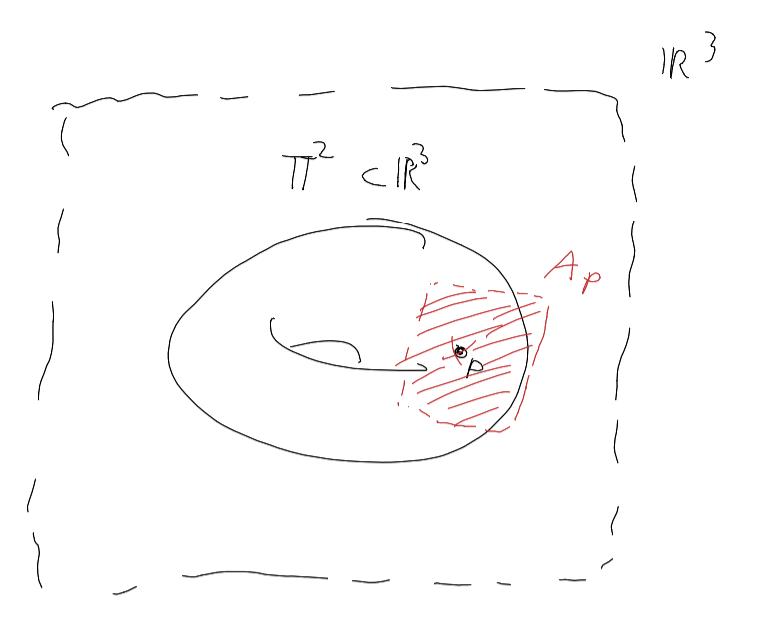 ℝ³
𝕋² ⊂ ℝ³
Aₚ
p